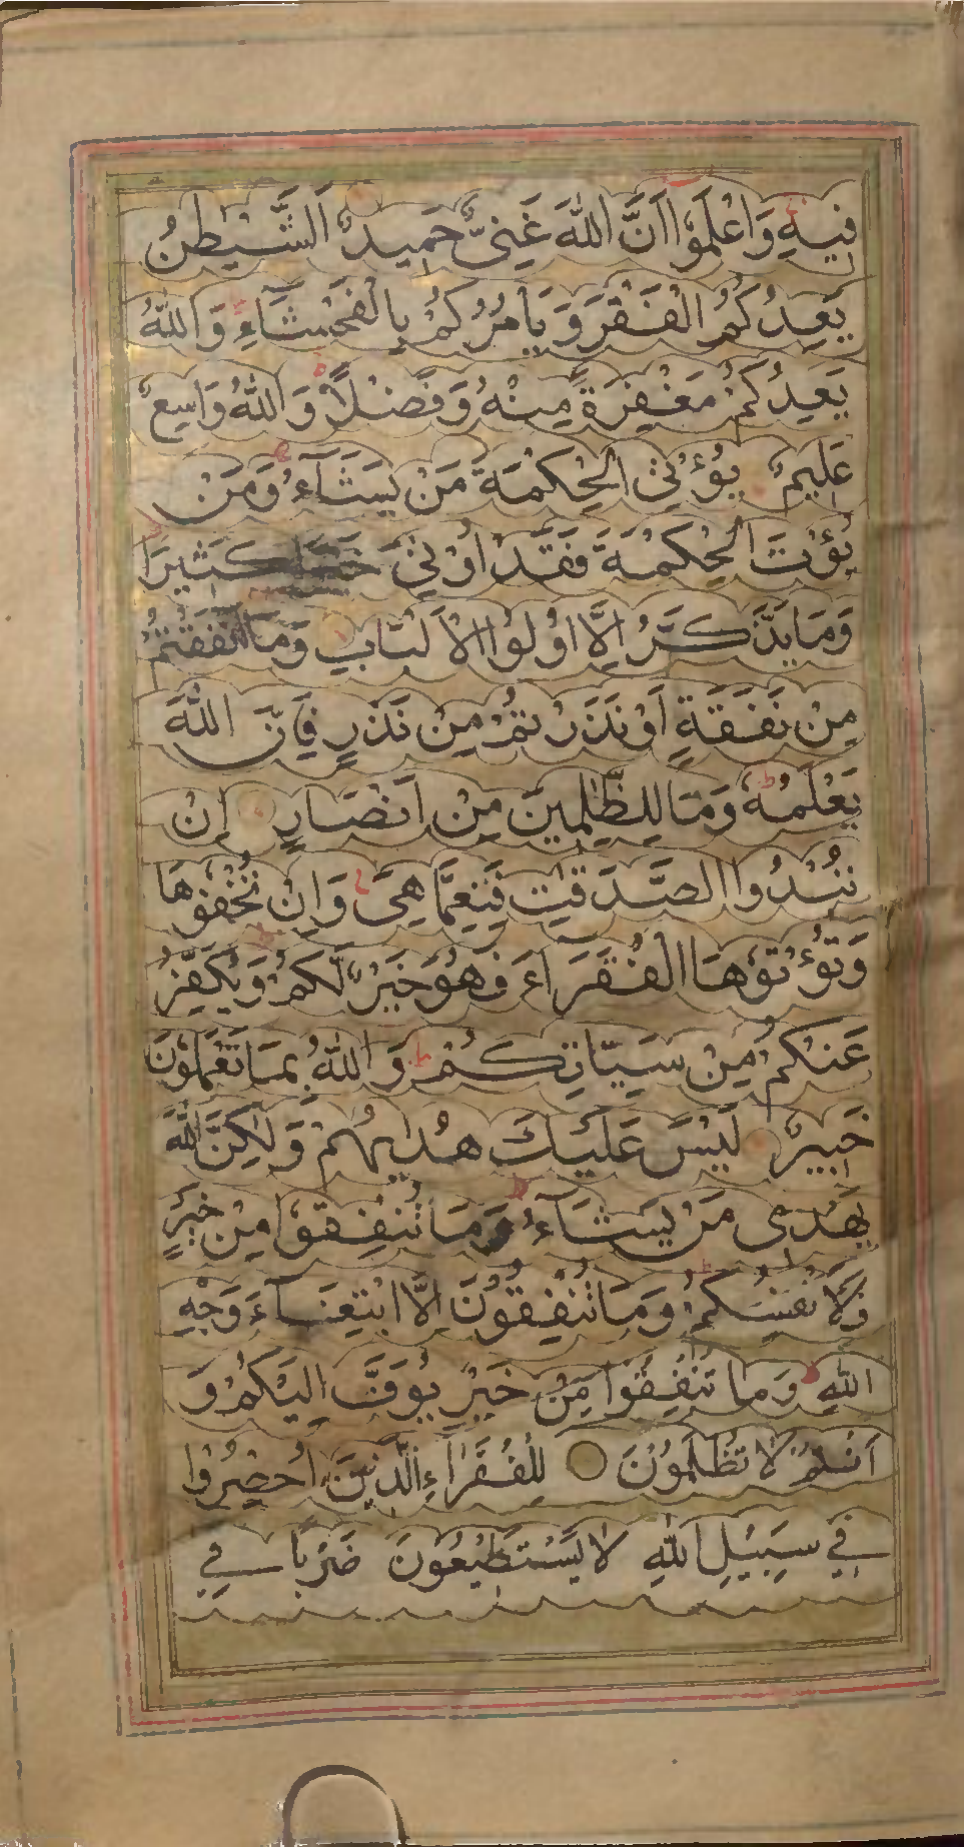 فِيهِ وَاعْلَمُوا اَنَّ اللّٰهَ غَنِیٌّ حَمِيدٌ اَلشَّيْطٰنُ
يَعِدُكُمُ الْفَقْرَ وَيَأْمُرُكُمْ بِالْفَحْشَاءِ وَاللّٰهُ
يَعِدُكُمْ مَغْفِرَةً مِنْهُ وَفَضْلًا وَاللّٰهُ وَاسِعٌ
عَلِيمٌ يُؤْتِی الْحِكْمَةَ مَنْ يَشَآءُ وَمَنْ
يُؤْتَ الْحِكْمَةَ فَقَدْ اُوْتِیَ كَثِيرًا
وَمَا يَذَّكَّرُ اِلَّا اُولُوا الْاَلْبَابِ وَمَا اَنْفَقْتُمْ
مِنْ نَفَقَةٍ اَوْ نَذَرْتُمْ مِنْ نَذْرٍ فَاِنَّ اللّٰهَ
يَعْلَمُهُ وَمَا لِلظّٰلِمِينَ مِنْ اَنْصَارٍ اِنْ
تُبْدُوا الصَّدَقٰتِ فَنِعِمَّا هِیَ وَاِنْ تُخْفُوهَا
وَتُؤْتُوهَا الْفُقَرَاءَ فَهُوَ خَيْرٌ لَكُمْ وَيُكَفِّرُ
عَنْكُمْ مِنْ سَيِّاٰتِكُمْ وَاللّٰهُ بِمَا تَعْمَلُونَ
خَبِيرٌ لَيْسَ عَلَيْكَ هُدٰيهُمْ وَلٰكِنَّ اللّٰهَ
يَهْدِی مَنْ يَشَآءُ وَمَا تُنْفِقُوا مِنْ خَيْرٍ
فَلِاَنْفُسِكُمْ وَمَا تُنْفِقُوْنَ اِلَّا ابْتِغَآءَ وَجْهِ
اللّٰهِ وَمَا تُنْفِقُوا مِنْ خَيْرٍ يُوَفَّ اِلَيْكُمْ وَ
اَنْتُمْ لَا تُظْلَمُوْنَ لِلْفُقَرَاءِ الَّذِيْنَ اُحْصِرُوْا
فِی سَبِيْلِ اللّٰهِ لَا يَسْتَطِيْعُوْنَ ضَرْبًا فِی